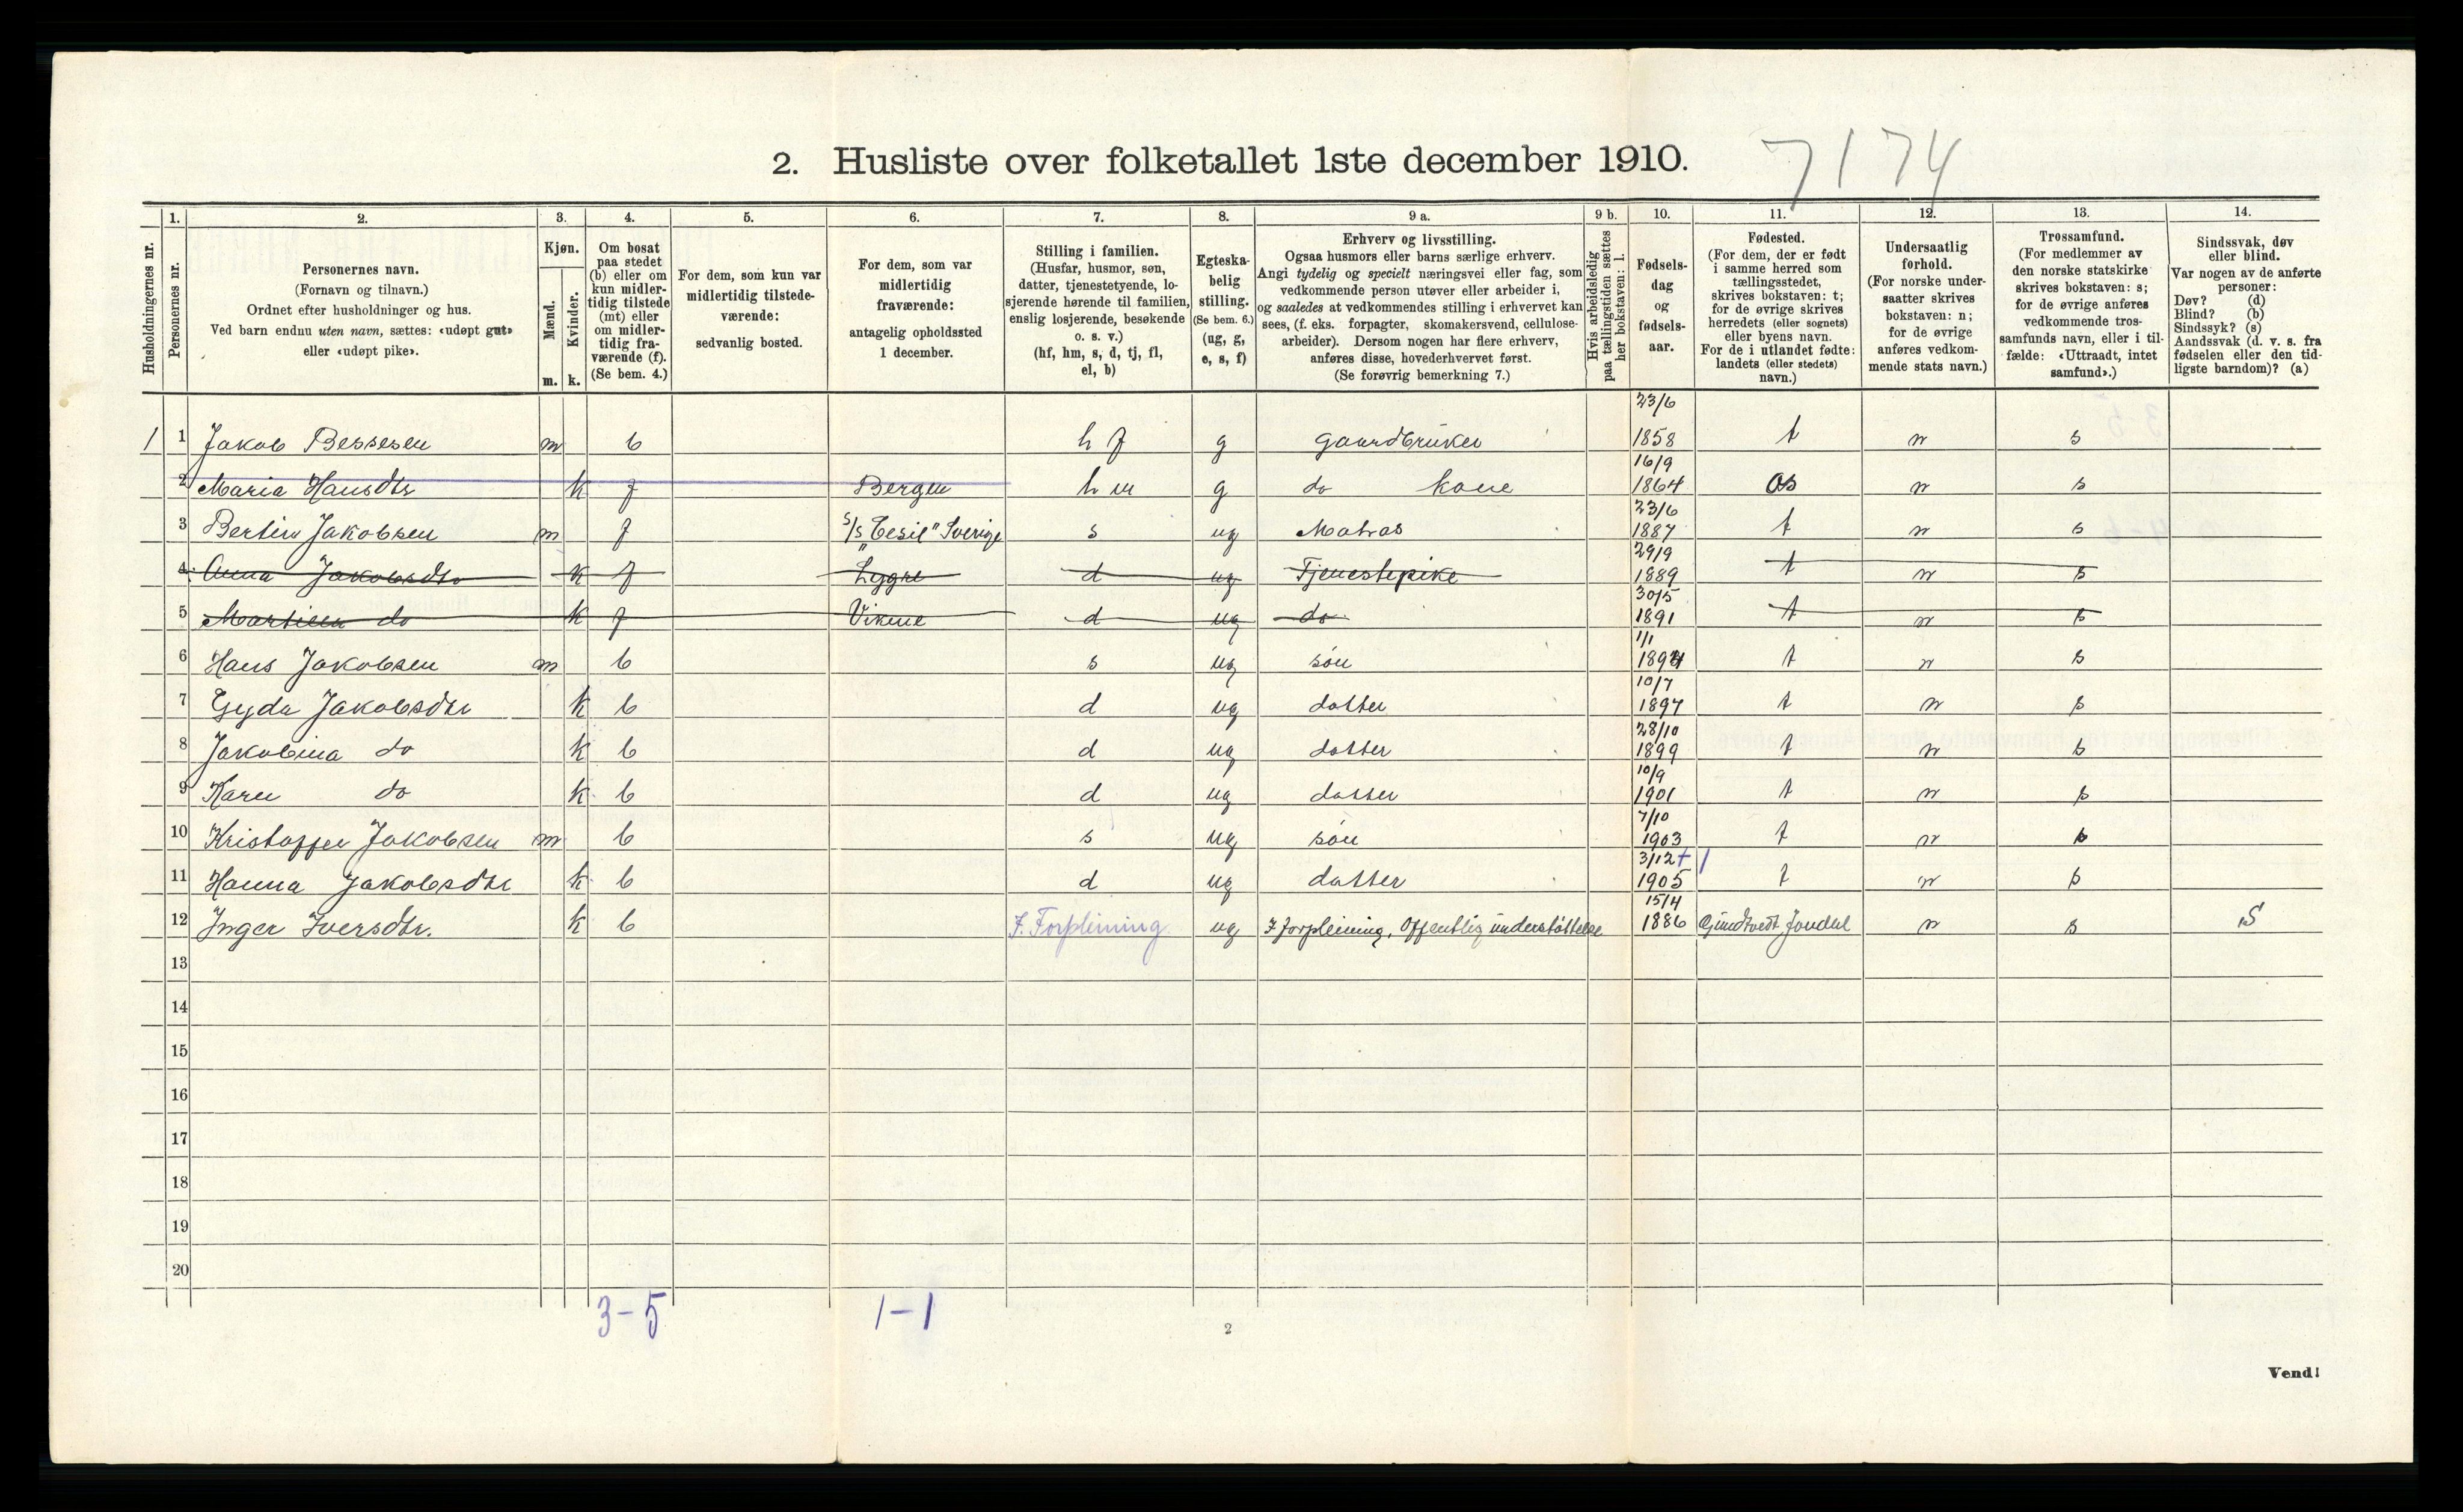 2. Husliste over folketallet 1ste december 1910.
7174
Husholdningernes nr.
1.
Personernes nr.
2.
Personernes navn.
(Fornavn og tilnavn.)
Ordnet efter husholdninger og hus.
Ved barn endnu uten navn, sættes: «udøpt gut»
eller «udøpt pike».
3.
Kjøn.
Mænd.
Kvinder.
m. k.
4.
Om bosat
paa stedet
(b) eller om
kun midler-
tidig tilstede
(mt) eller
om midler-
tidig fra-
værende (f).
(Se bem. 4.)
5.
For dem, som kun var
midlertidig tilstede-
værende:
sedvanlig bosted.
6.
For dem, som var
midlertidig
fraværende:
antagelig opholdssted
1 december.
7.
Stilling i familien.
(Husfar, husmor, søn,
datter, tjenestetyende, lo-
sjerende hørende til familien,
enslig losjerende, besøkende
o. s. v.)
(hf, hm, s, d, tj, fl,
el, b)
8.
Egteska-
belig
stilling.
(Se bem. 6.)
(ug, g,
e, s, f)
9 a.
Erhverv og livsstilling.
Ogsaa husmors eller barns særlige erhverv.
Angi tydelig og specielt næringsvei eller fag, som
vedkommende person utøver eller arbeider i,
og saaledes at vedkommendes stilling i erhvervet kan
sees, (f. eks. forpagter, skomakersvend, cellulose-
arbeider). Dersom nogen har flere erhverv,
anføres disse, hovederhvervet først.
(Se forøvrig bemerkning 7.)
9 b.
Hvis arbeidsledig
paa tællingstiden sættes
her bokstaven: l.
10.
Fødsels-
dag
og
fødsels-
aar.
11.
Fødested.
(For dem, der er født
i samme herred som
tællingsstedet,
skrives bokstaven: t;
for de øvrige skrives
herredets (eller sognets)
eller byens navn.
For de i utlandet fødte:
landets (eller stedets)
navn.)
12.
Undersaatlig
forhold.
(For norske under-
saatter skrives
bokstaven: n;
for de øvrige
anføres vedkom-
mende stats navn.)
13.
Trossamfund.
(For medlemmer av
den norske statskirke
skrives bokstaven: s;
for de øvrige anføres
vedkommende tros-
samfunds navn, eller i til-
fælde: «Uttraadt, intet
samfund».)
14.
Sindssvak, døv
eller blind.
Var nogen av de anførte
personer:
Døv? (d)
Blind? (b)
Sindssyk? (s)
Aandssvak (d. v. s. fra
fødselen eller den tid-
ligste barndom)? (a)
1 1 Jakob Bessesen m b h f g gaardbruker 23/6 1858 t n s
2 Maria Hansdtr k f Bergen h m g do kone 16/9 1864 Os n s
3 Bertin Jakobsen m f S/S "Cesil" Sverige s ug Matros 23/6 1887 t n s
4 Anna Jakobsdtr k f Lygre d ug Tjenestepike 29/9 1889 t n s
5 do k f Vikene d ug do 30/5 1891 t n s
6 Hans Jakobsen m b s ug søn 1/1 1894 t n s
7 Gyda Jakobsdtr k b d ug datter 10/7 1897 t n s
8 Jakobina do k b d ug datter 28/10 1899 t n s
9 Karen do k b d ug datter 10/9 1901 t n s
10 Kristoffer Jakobsen m b s ug søn 7/10 1903 t n s
11 Hanna Jakobsdtr k b d ug datter 3/12 1905 t n s
12 Inger Iversdtr. k b F. Forpleining ug I forpleining, Offentlig understøttelse 15/4 1886 Jondal n s S
13
14
15
16
17
18
19
20
3-5
1-1
2
Vend!